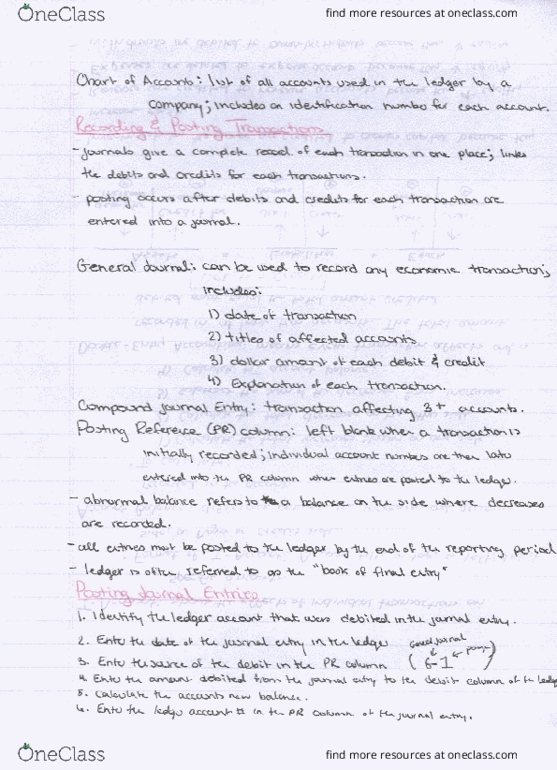 OneClass
find more resources at oneclass.com
Chart of Accounts: list of all accounts used in the ledger by a
company; includes an identification number for each account.
Recording & Posting Transactions
- journals give a complete record of each transaction in one place; links
the debits and credits for each transactions.
- posting occurs after debits and credits for each transaction are
entered into a journal.
General Journal: can be used to record any economic transaction;
includes:
1) date of transaction
2) titles of affected accounts
3) dollar amount of each debit & credit
4) Explanation of each transaction.
Compound Journal Entry: transaction affecting 3+ accounts.
Posting Reference (PR) column: left blank when a transaction is
initially recorded; individual account numbers are then later
entered into the PR column when entries are posted to the ledger.
- abnormal balance refers to a balance on the side where decreases
are recorded.
- all entries must be posted to the ledger by the end of the reporting period
- ledger is often referred to as the "book of final entry"
Posting Journal Entries
1. Identify the ledger account that was debited in the journal entry.
2. Enter the date of the journal entry in the ledger
general journal
page
3. Enter the source of the debit in the PR column ( G-1 )
4. Enter the amount debited from the journal entry to the debit column of the ledger
5. Calculate the accounts new balance.
6. Enter the ledger account # in the PR column of the journal entry.
OneClass
find more resources at oneclass.com